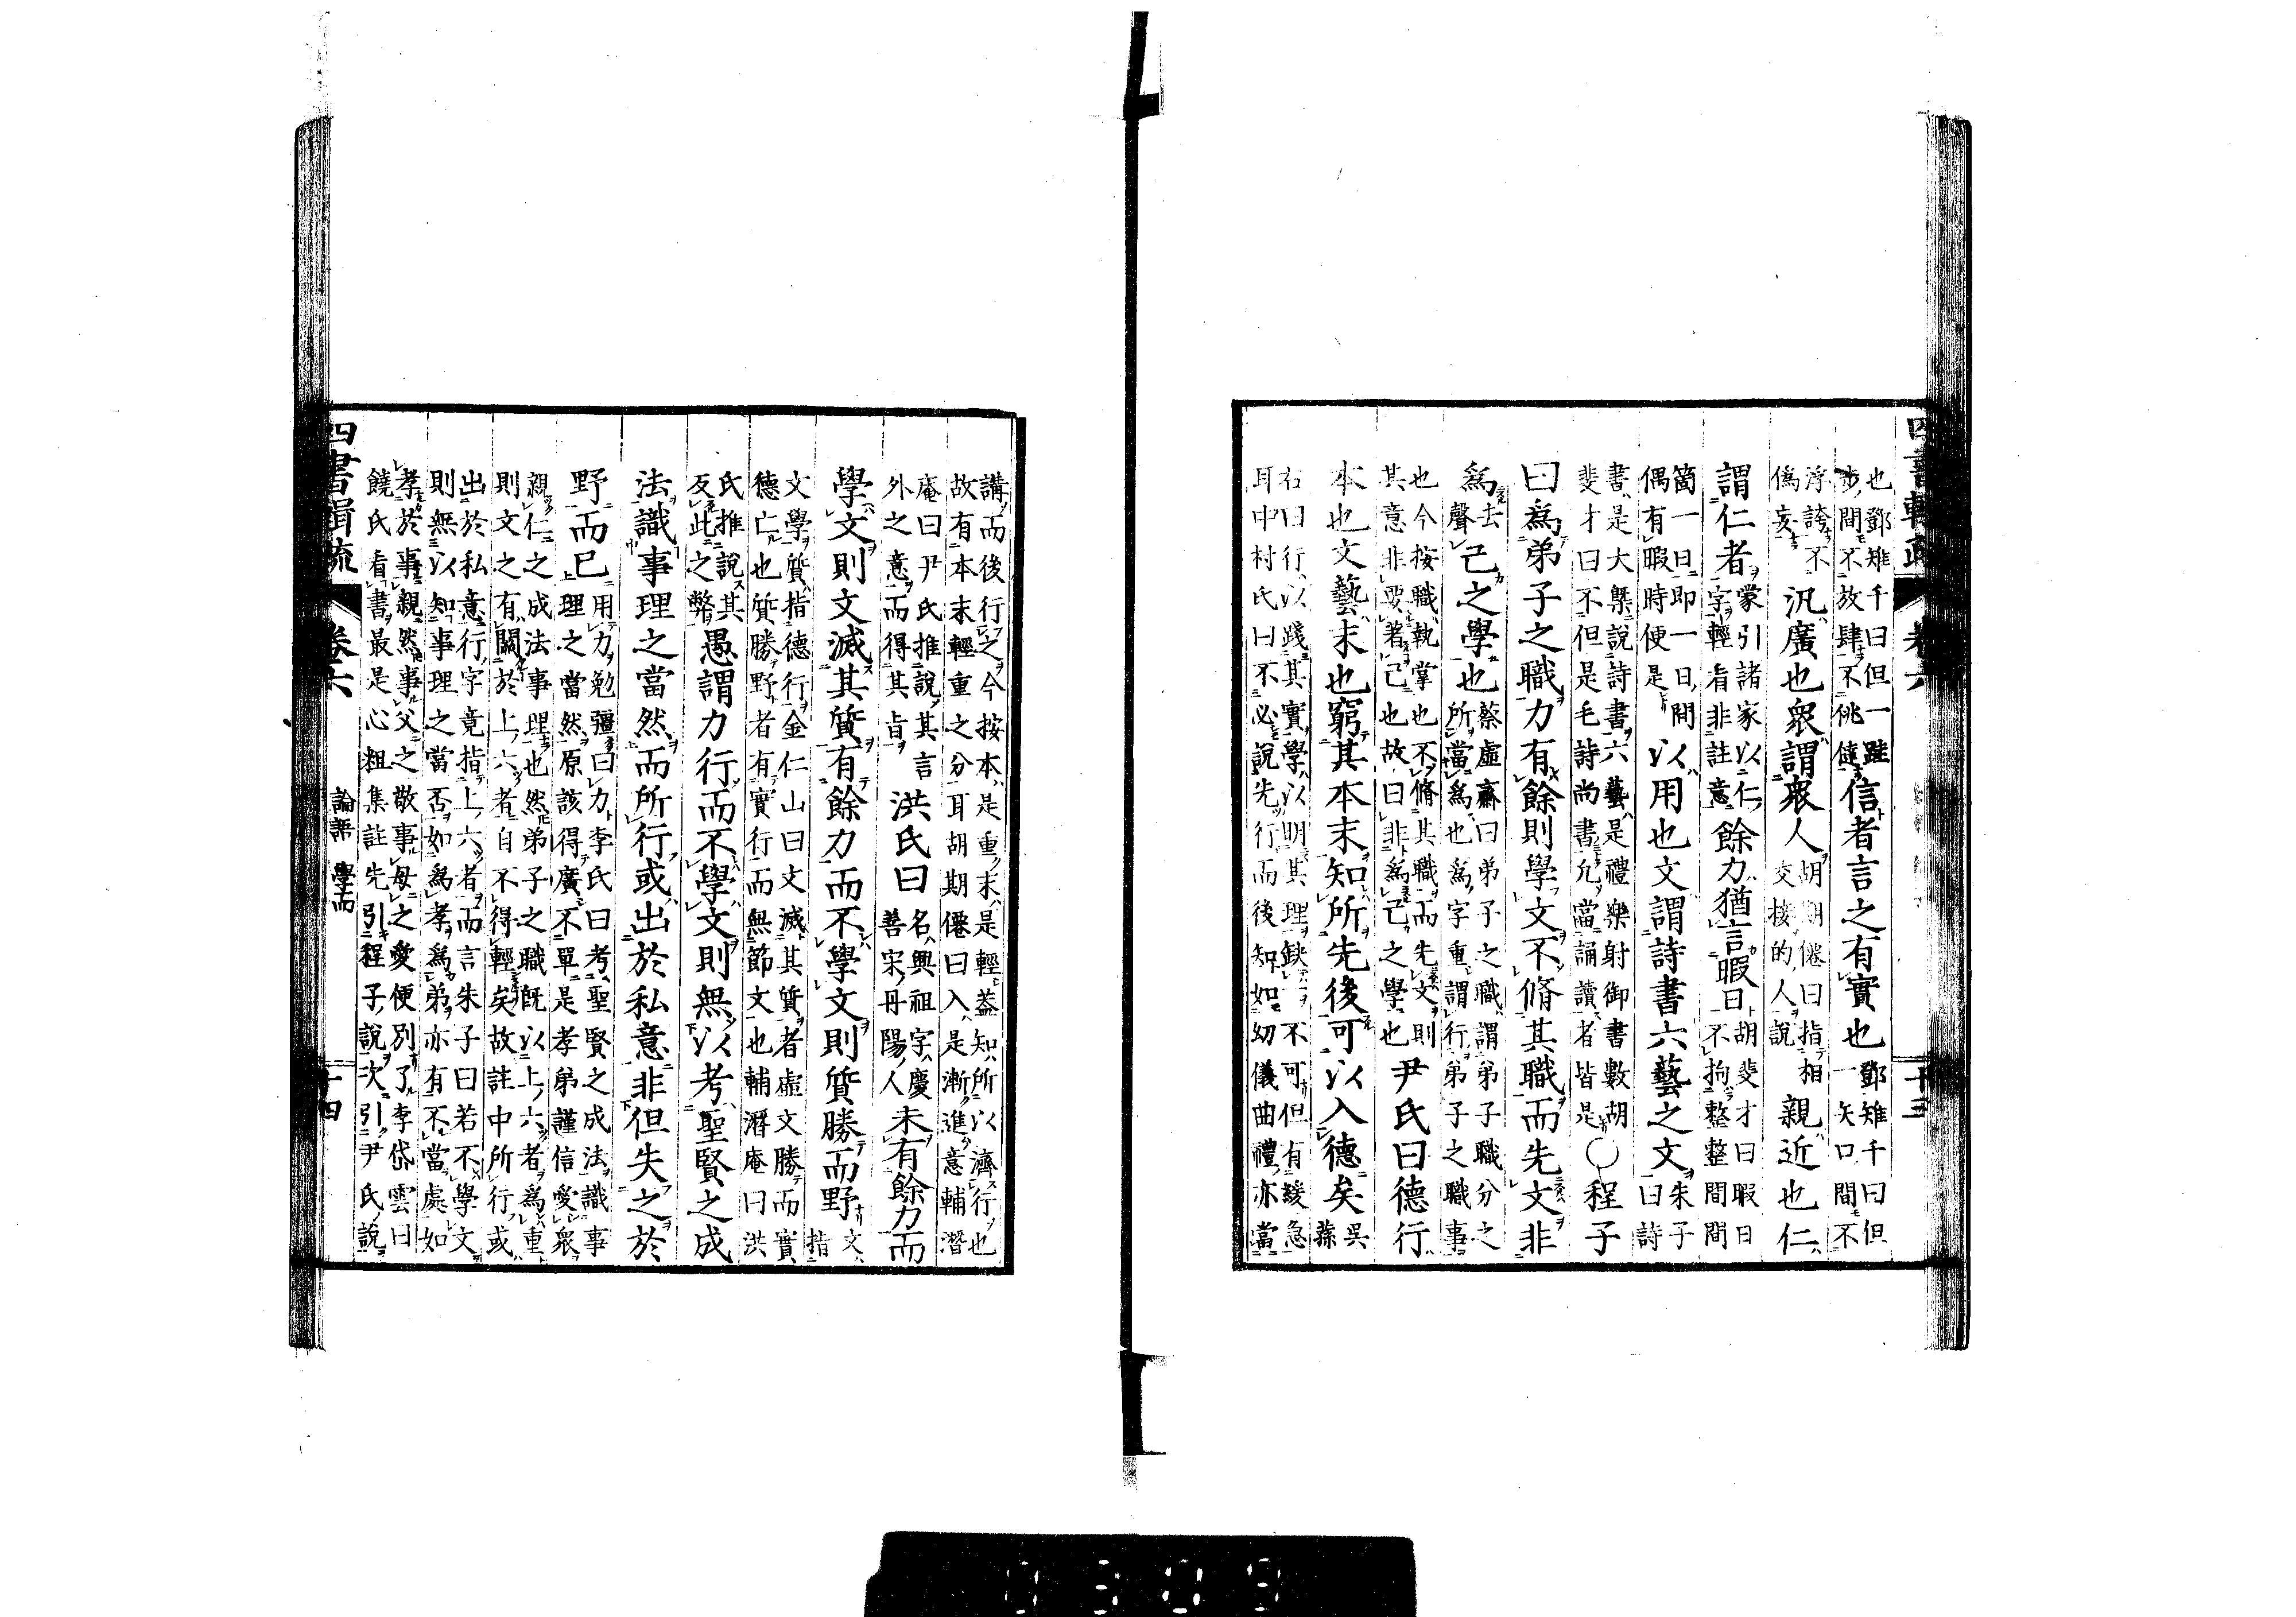 四書輯疏
卷六
十三
也鄧雉千曰但一跬
步間不故肆不佻㒓
信者言之有實也
鄧雉千曰但
一矢口間不
浮誇不
偽妄
汎廣也衆謂衆人
胡期僊曰指相
交接的人說
親近也仁
謂仁者
蒙引諸家以仁
字輕看非註意
餘力猶言暇日
胡斐才曰暇日
不拘整整間間
箇一日即一日間
偶有暇時便是
以用也文謂詩書六藝之文
朱子
曰詩
書是大槩說詩書六藝是禮樂射御書數胡
斐才曰不但是毛詩尚書凡當誦讀者皆是
○程子
曰爲弟子之職力有餘則學文不脩其職而先文非
爲
去
聲
己之學也
蔡虛齋曰弟子之職謂弟子職分之
所當爲也爲字重謂行弟子之職事
也今按職執掌也不脩其職而先文則
其意非要著己也故曰非爲己之學也
尹氏曰德行
本也文藝末也窮其本末知所先後可以入德矣
吳
蓀
右曰行以踐其實學以明其理缺一不可但有緩急
耳中村氏曰不必說先行而後知如幼儀曲禮亦當
講而後行之今按本是重末是輕蓋知所以濟行也
故有本末輕重之分耳胡期僊曰入是漸進意輔潛
庵曰尹氏推說其言
外之意而得其旨
洪氏曰
名興祖字慶
善宋丹陽人
未有餘力而
學文則文滅其質有餘力而不學文則質勝而野
文
指
文學質指德行金仁山曰文滅其質者虛文勝而實
德亡也質勝野者有實行而無節文也輔潛庵曰洪
氏推說其
反此之弊
愚謂力行而不學文則無以考聖賢之成
法識事理之當然而所行或出於私意非但失之於
野而已
用力勉彊曰力李氏曰考聖賢之成法識事
理之當然原該得廣不單是孝弟謹信愛衆
親仁之成法事理也然弟子之職旣以上六者爲重
則文之有闕於上六者自不得輕矣故註中所行或
出於私意行字竟指上六者而言朱子曰若不學文
則無以知事理之當否如爲孝爲弟亦有不當處如
孝於事親然事父之敬事母之愛便別了李岱雲曰
饒氏看書最是心粗集註先引程子說次引尹氏說
四書輯疏
卷六
論語 學而
十四